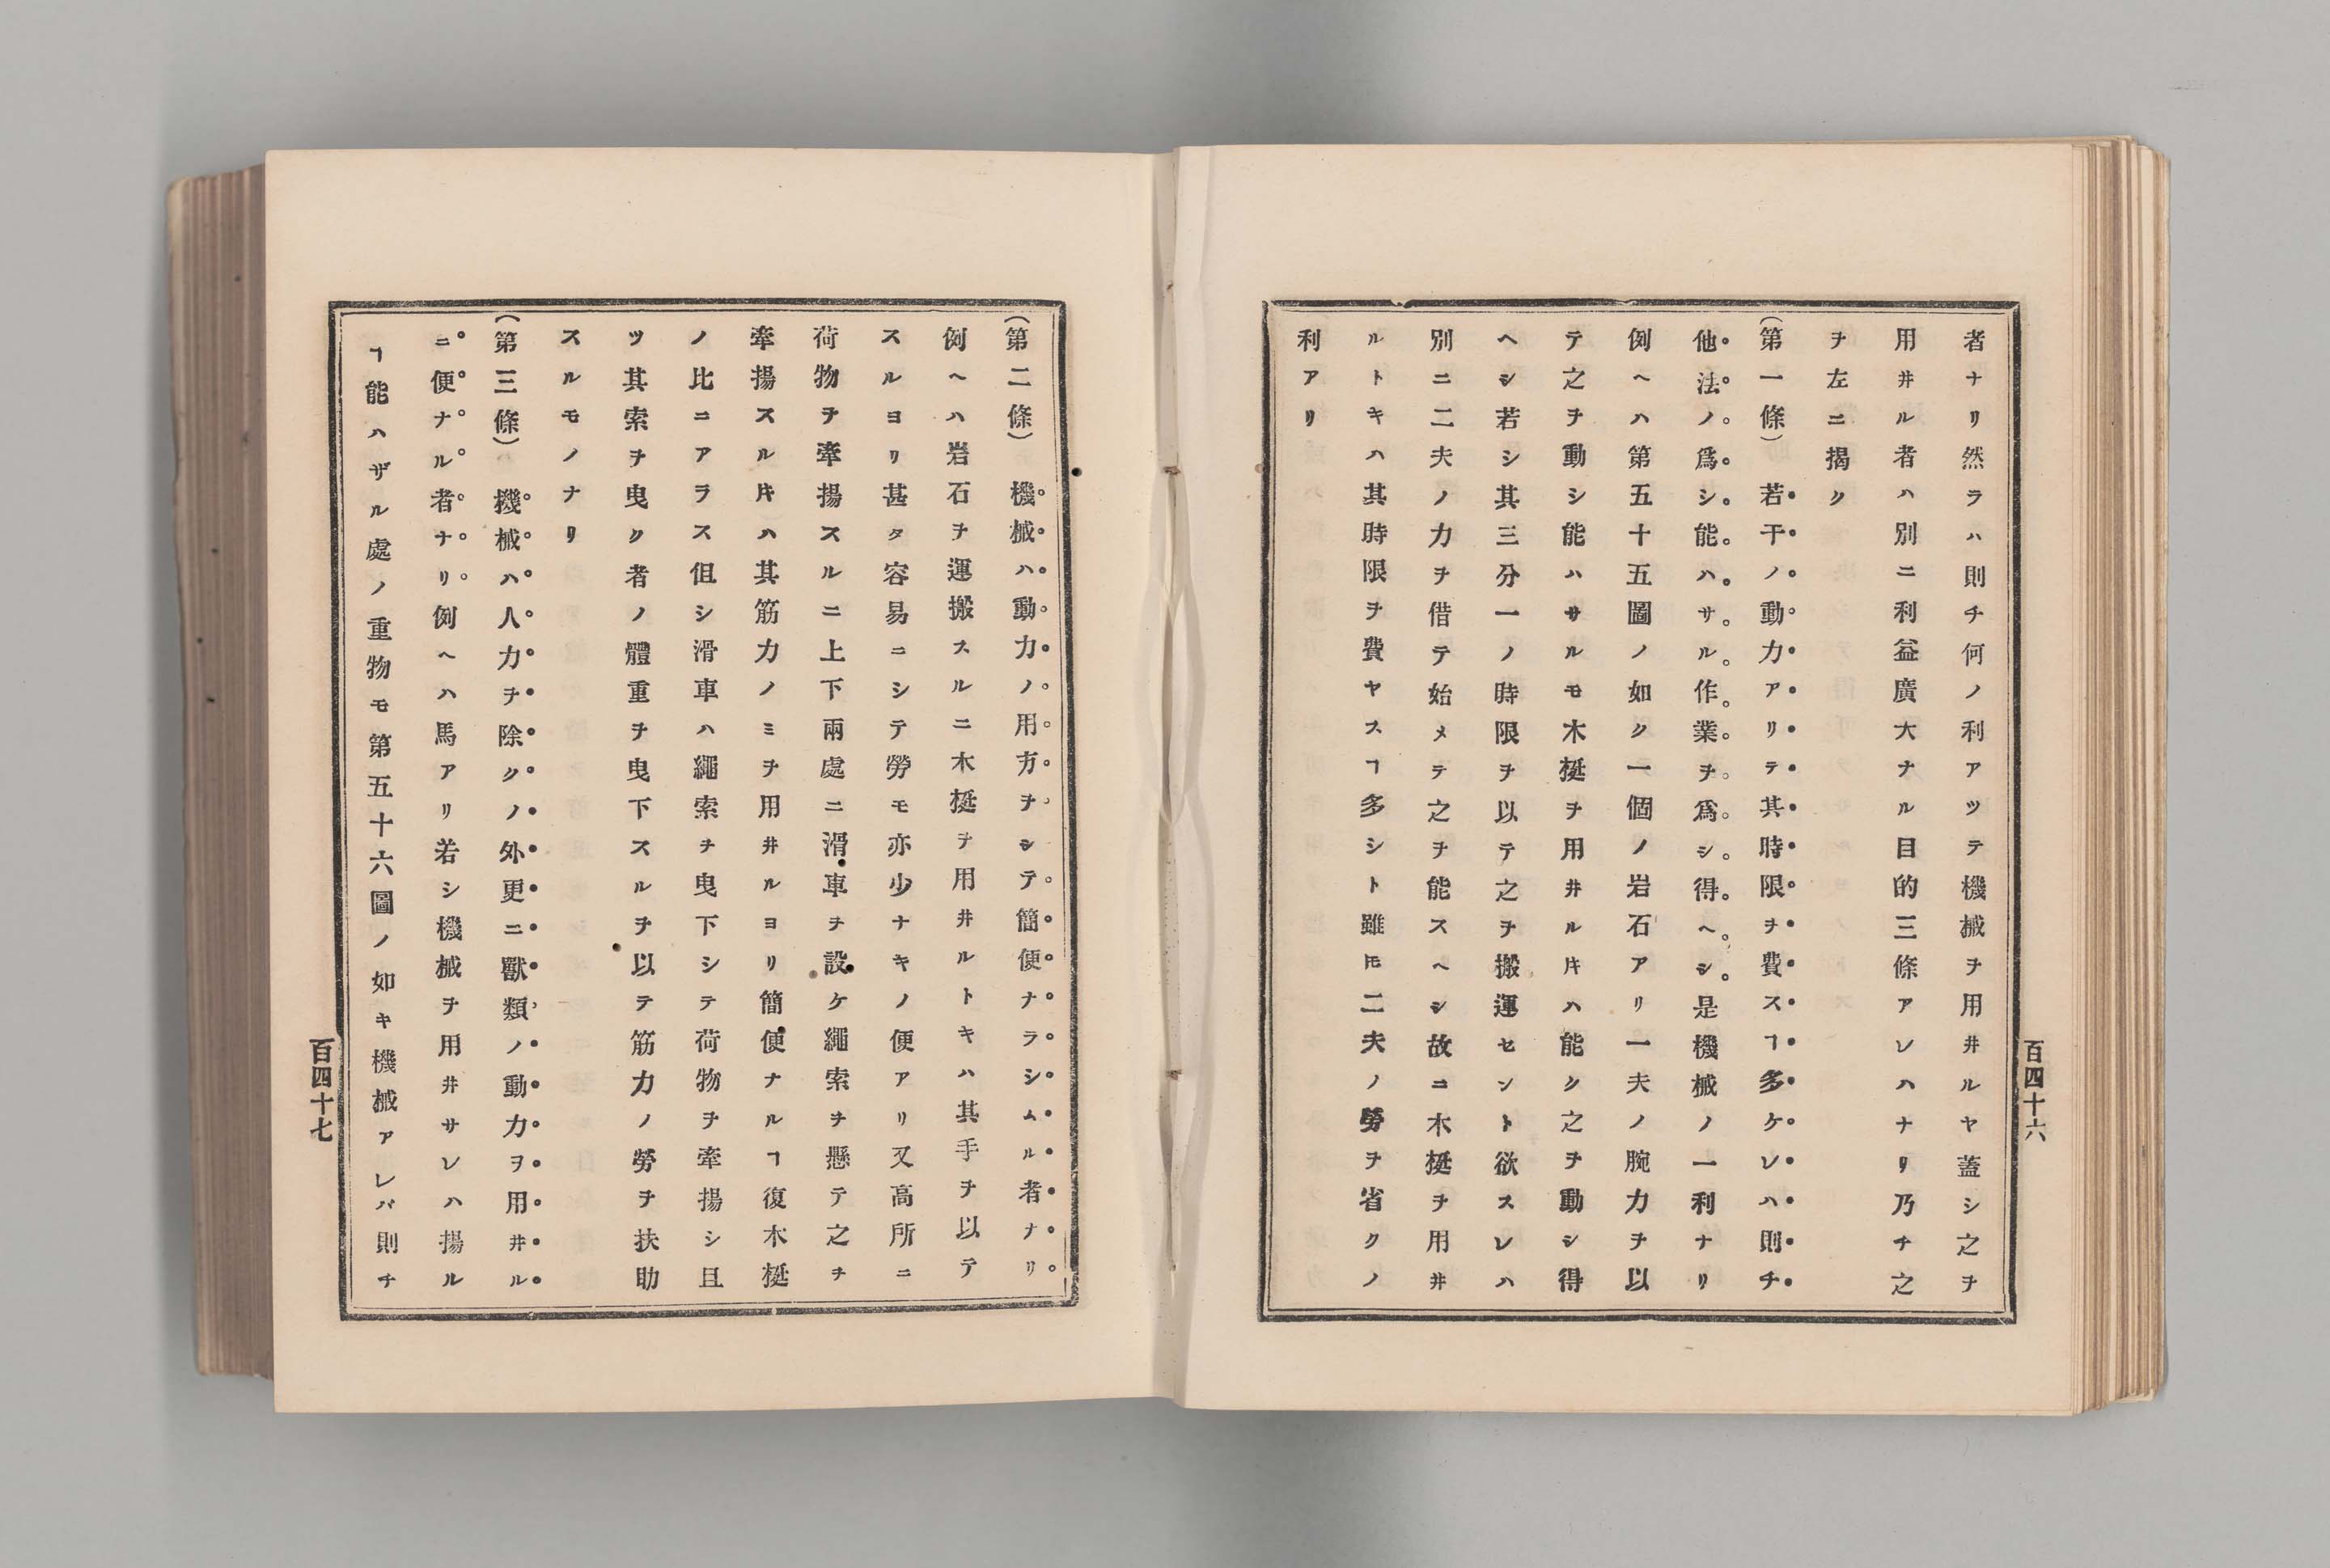 者ナリ然ラハ則チ何ノ利アツテ機械ヲ用井ルヤ蓋シ之ヲ
用井ル者ハ別ニ利益廣大ナル目的三條アレハナリ乃チ之
ヲ左ニ揭ク
(第一條)若干ノ動力アリテ其時限ヲ費スヿ多ケレハ則チ
他法ノ爲シ能ハサル作業ヲ爲シ得ヘシ是機械ノ一利ナリ
例ヘハ第五十五圖ノ如ク一個ノ岩石アリ一夫ノ腕力ヲ以
テ之ヲ動シ能ハサルモ木梃ヲ用井ル𪜈ハ能ク之ヲ動シ得
ヘシ若シ其三分一ノ時限ヲ以テ之ヲ搬運セント欲スレハ
別ニ二夫ノ力ヲ借テ始メテ之ヲ能スヘシ故ニ木梃ヲ用井
ルトキハ其時限ヲ費ヤスヿ多シト雖𪜈二夫ノ勞ヲ省クノ
利アリ
百四十六
(第二條)機械ハ動力ノ用方ヲシテ簡便ナラシムル者ナリ
例ヘハ岩石ヲ運搬スルニ木梃ヲ用井ルトキハ其手ヲ以テ
スルヨリ甚タ容易ニシテ勞モ亦少ナキノ便アリ又高所ニ
荷物ヲ牽揚スルニ上下兩處ニ滑車ヲ設ケ繩索ヲ懸テ之ヲ
牽揚スル𪜈ハ其筋力ノミヲ用井ルヨリ簡便ナルヿ復木梃
ノ比ニアラス但シ滑車ハ繩索ヲ曳下シテ荷物ヲ牽揚シ且
ツ其索ヲ曳ク者ノ體重ヲ曳下スルヲ以テ筋力ノ勞ヲ扶助
スルモノナリ
(第三條)機械ハ人力ヲ除クノ外更ニ獸類ノ動力ヲ用井ル
ニ便ナル者ナリ例ヘハ馬アリ若シ機械ヲ用井サレハ揚ル
ヿ能ハザル處ノ重物モ第五十六圖ノ如キ機械アレバ則チ
百四十七